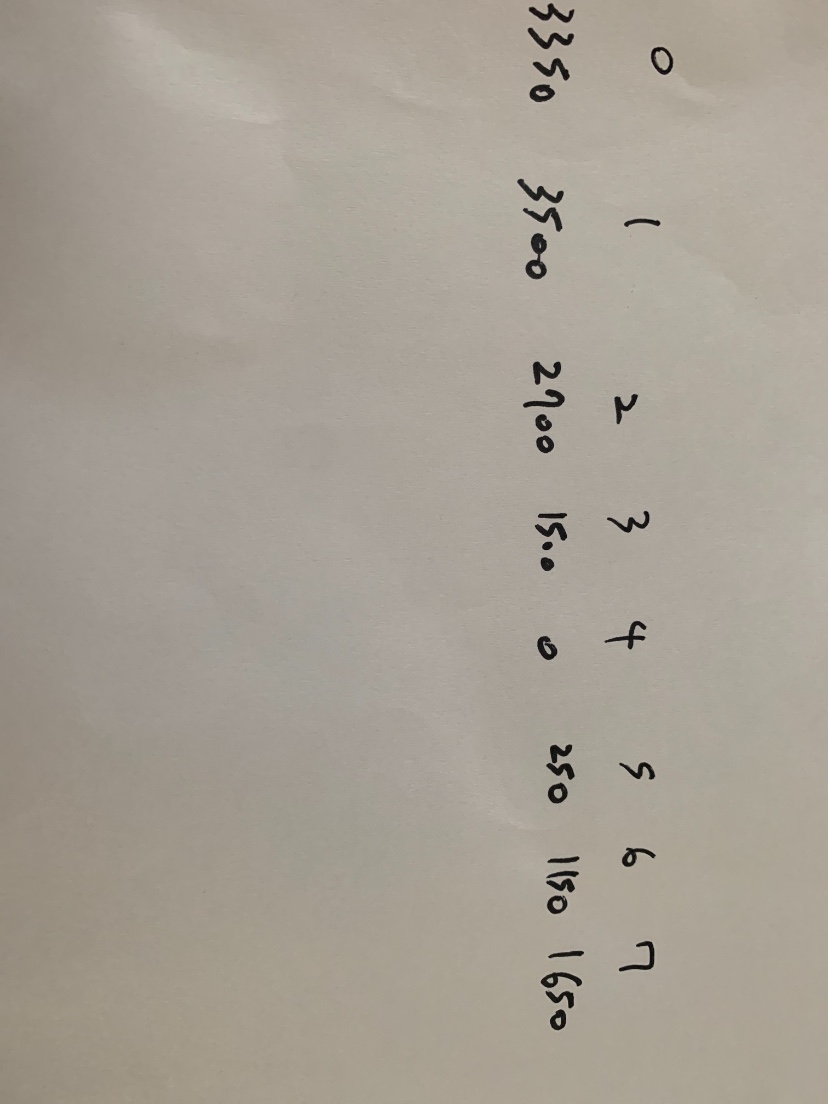 0 1 2 3 4 5 6 7
3350 3500 2900 1500 0 250 1150 1650